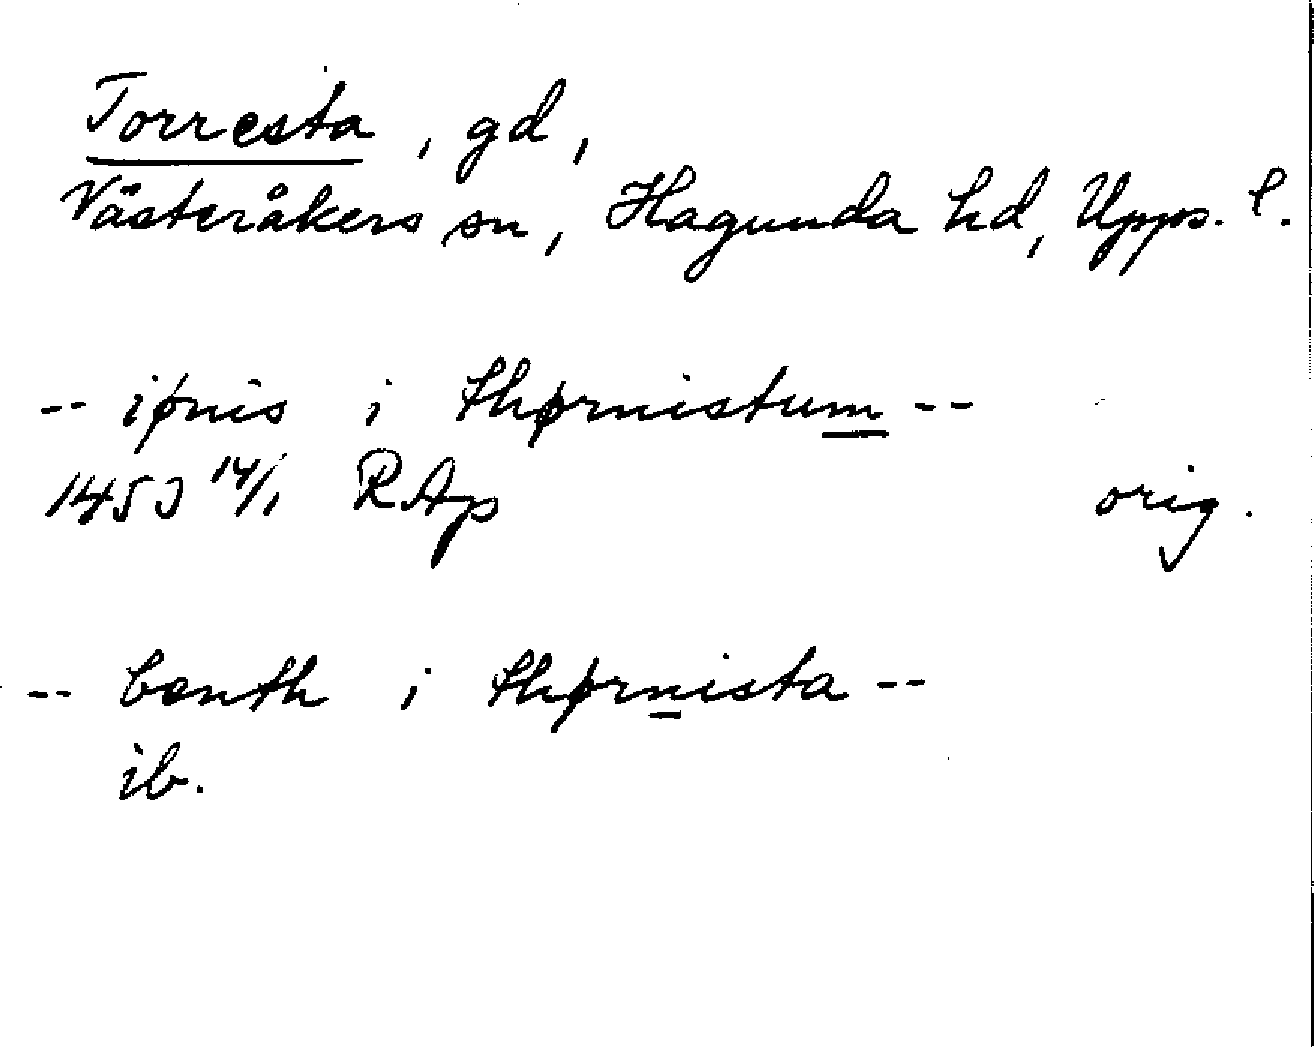 Torresta, gd,
Västeråkers sn, Hagunda hd, Upps. l.
-- iønis i thørnistum --
1453 14/1 RAp orig.
-- benth i thørnista --
ib.